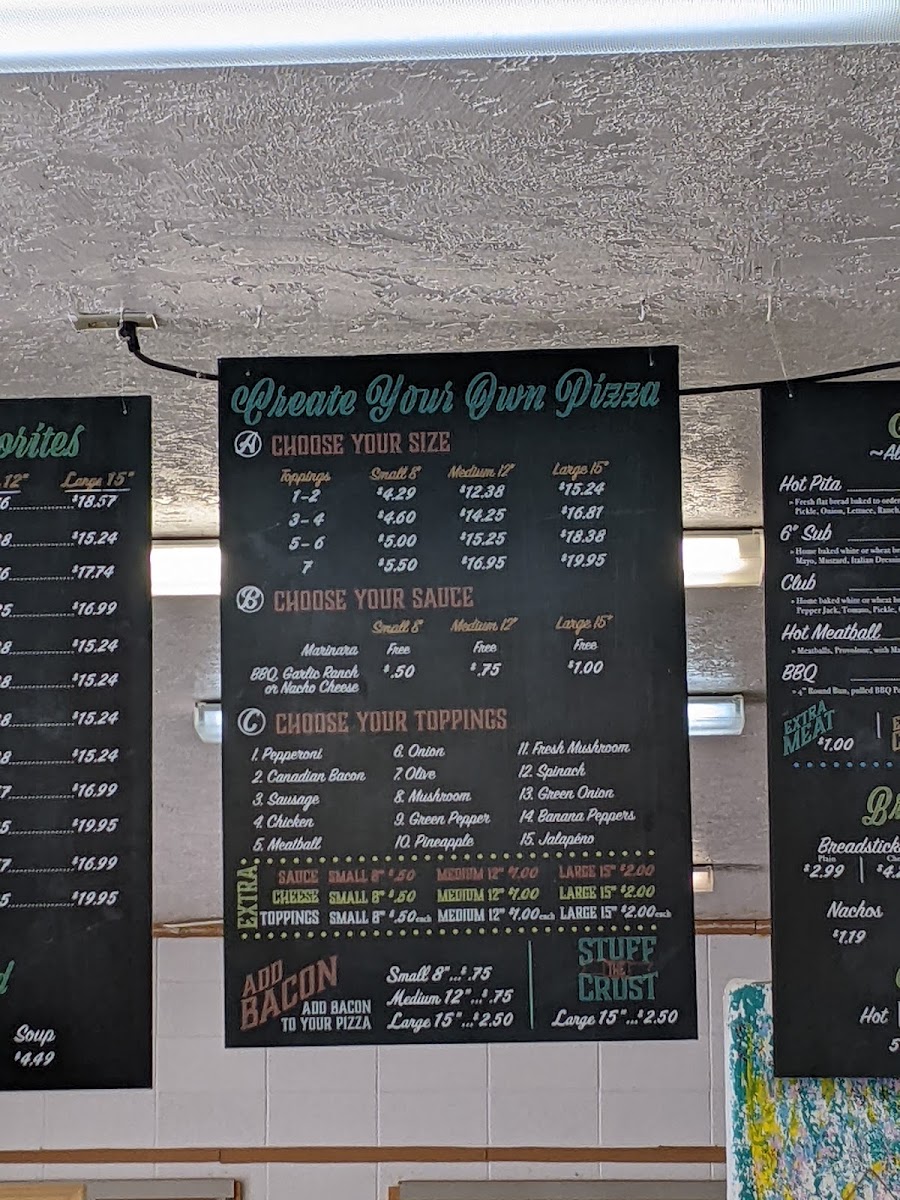 orites
12" Large 15"
$18.57
$15.24
$17.74
$16.99
$15.24
$15.24
$15.24
$15.24
$16.99
$19.95
$16.99
$19.95
Soup
$4.49
Create Your Own Pizza
A CHOOSE YOUR SIZE
Toppings Small 8" Medium 12" Large 15"
1-2 $4.29 $12.38 $15.24
3-4 $4.60 $14.25 $16.81
5-6 $5.00 $15.25 $18.38
7 $5.50 $16.95 $19.95
B CHOOSE YOUR SAUCE
Small 8" Medium 12" Large 15"
Marinara Free Free Free
BBQ, Garlic Ranch $.50 $.75 $1.00
or Nacho Cheese
C CHOOSE YOUR TOPPINGS
1. Pepperoni 6. Onion 11. Fresh Mushroom
2. Canadian Bacon 7. Olive 12. Spinach
3. Sausage 8. Mushroom 13. Green Onion
4. Chicken 9. Green Pepper 14. Banana Peppers
5. Meatball 10. Pineapple 15. Jalapéno
EXTRA
SAUCE SMALL 8" $.50 MEDIUM 12" $1.00 LARGE 15" $2.00
CHEESE SMALL 8" $.50 MEDIUM 12" $1.00 LARGE 15" $2.00
TOPPINGS SMALL 8" $.50 each MEDIUM 12" $1.00 each LARGE 15" $2.00 each
ADD
BACON
ADD BACON
TO YOUR PIZZA
Small 8"...$.75
Medium 12"...$.75
Large 15"...$2.50
STUFF
THE
CRUST
Large 15"...$2.50
Hot Pita
» Fresh flat bread baked to order
Pickle, Onion, Lettuce, Ranch
6" Sub
» Home baked white or wheat
Mayo, Mustard, Italian
Club
» Home baked white or wheat
Pepper Jack, Tomato, Pickle,
Hot Meatball
» Meatballs, Provolone, with
BBQ
» 4" Round Bun, pulled BBQ
EXTRA
MEAT
$1.00
Br
Breadstick
Plain
$2.99
Nachos
$1.19
Hot